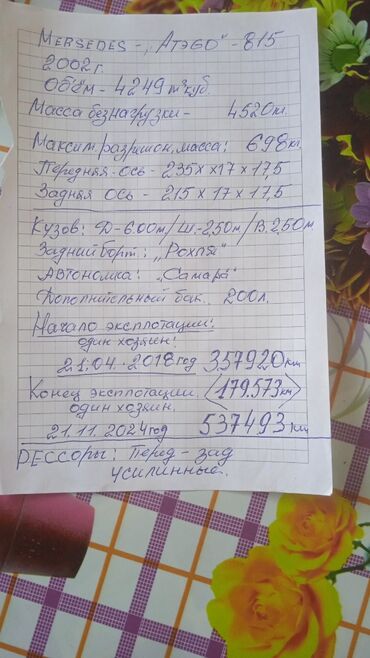 MERSEDES - „АТЭGО" - 815
2002г.
Объём - 4249 м³куб.
Масса без нагрузки - 4520кг.
Максим разрешок, масса: 698кг
Передняя-ось - 235х х17х17,5
Задняя ось - 215 х 17 х 17,5
Кузов: Д-600м/Ш.-2,50м/В.2,50м
Задний борт: „Рохля"
Автономка: „Самара"
Дополнительный бак. 200л.
Начало эксплотации:
один хозяин!
21.04.-2018 год 357920км
Конец эксплотации. 179.573км
один хозяин.
21.11.2024год 537493км
РЕССОРЫ: Перед-зад
усилинные.